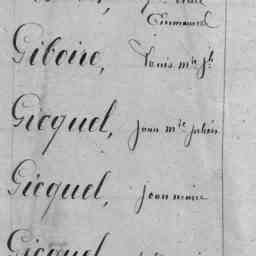 Emmanuel
Giboire, Louis m.ie jh
Gicquel, jean m.ie julien
Gicquel, jean marie
Gicquel